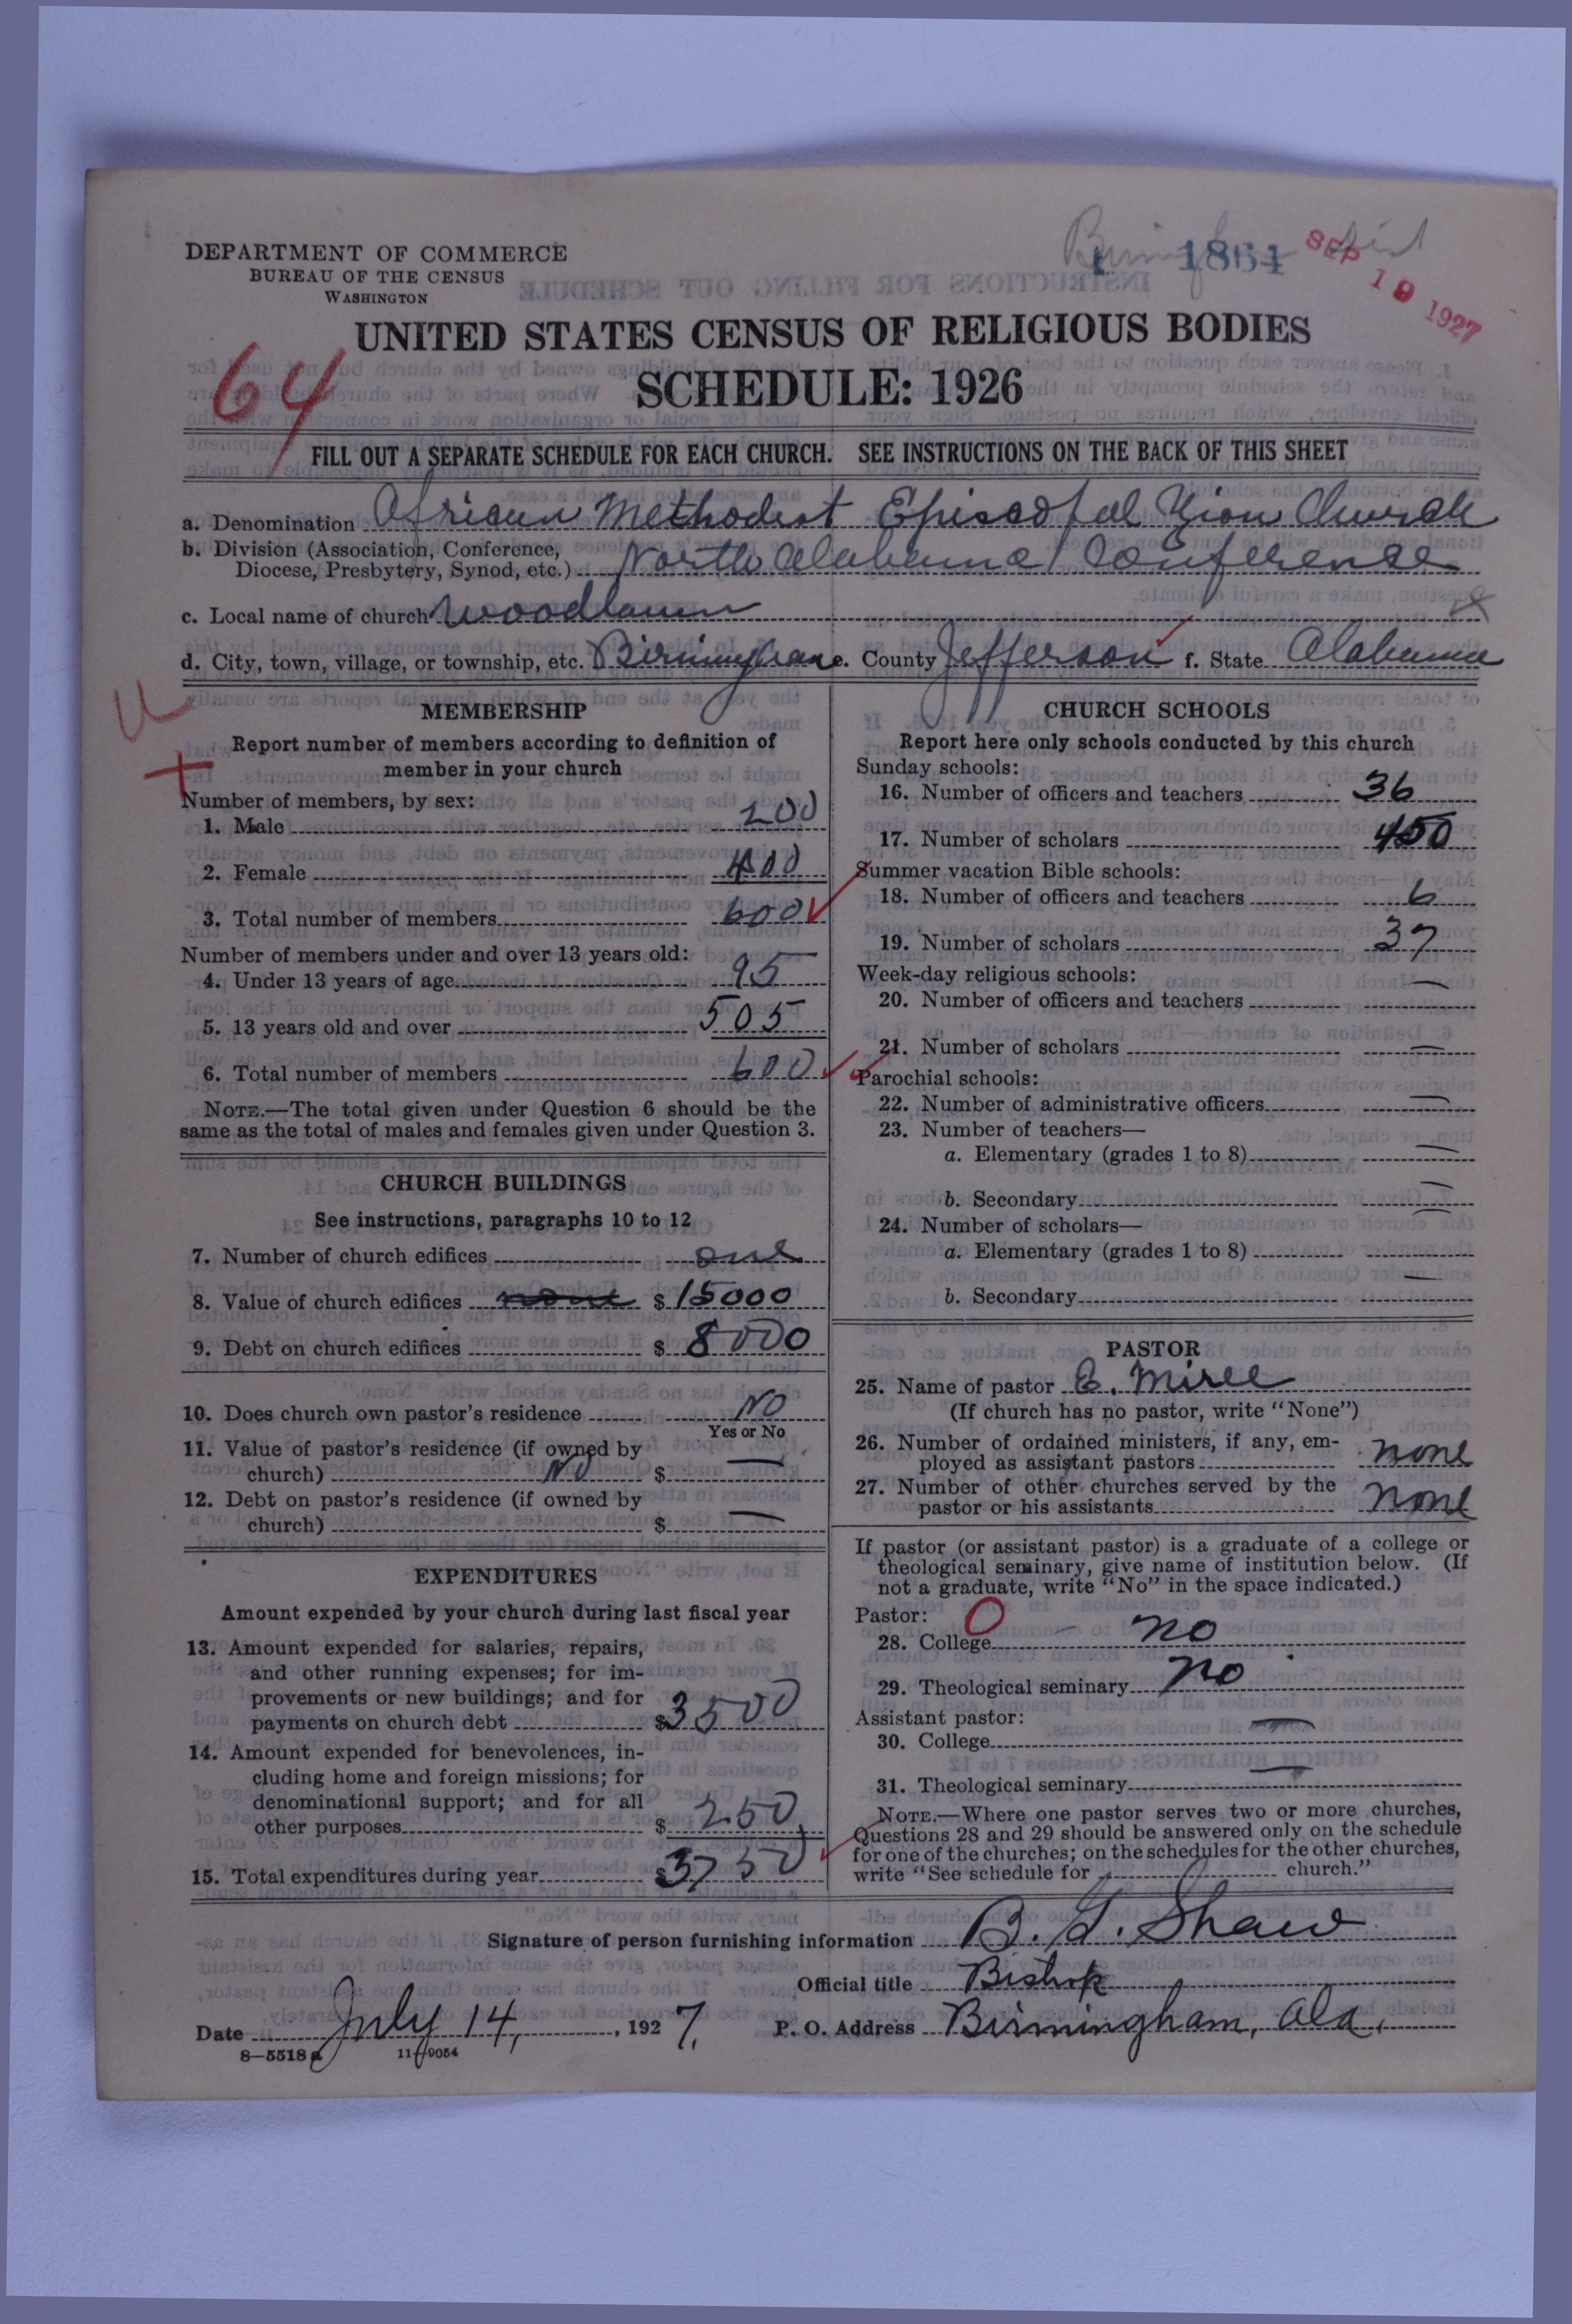 DEPARTMENT OF COMMERCE
BUREAU OF THE CENSUS
WASHINGTON
1 1864
SEP 19 1927
UNITED STATES CENSUS OF RELIGIOUS BODIES
SCHEDULE: 1926
64
FILL OUT A SEPARATE SCHEDULE FOR EACH CHURCH. SEE INSTRUCTIONS ON THE BACK OF THIS SHEET
a. Denomination African Methodist Episcopal Zion Church
b. Division (Association, Conference,
Diocese, Presbytery, Synod, etc.) North Alabama Conference
c. Local name of church Woodlawn
d. City, town, village, or township, etc. Birmingham e. County Jefferson f. State Alabama
MEMBERSHIP
Report number of members according to definition of
member in your church
Number of members, by sex:
1. Male 200
2. Female 400
3. Total number of members 600
Number of members under and over 13 years old:
4. Under 13 years of age 95
5. 13 years old and over 505
6. Total number of members 600
NOTE.—The total given under Question 6 should be the
same as the total of males and females given under Question 3.
CHURCH BUILDINGS
See instructions, paragraphs 10 to 12
7. Number of church edifices one
8. Value of church edifices none $ 15000
9. Debt on church edifices $ 8000
10. Does church own pastor's residence NO
Yes or No
11. Value of pastor's residence (if owned by
church) No $ —
12. Debt on pastor's residence (if owned by
church) $ —
EXPENDITURES
Amount expended by your church during last fiscal year
13. Amount expended for salaries, repairs,
and other running expenses; for im-
provements or new buildings; and for
payments on church debt $ 3500
14. Amount expended for benevolences, in-
cluding home and foreign missions; for
denominational support; and for all
other purposes $ 250
15. Total expenditures during year $ 3750
CHURCH SCHOOLS
Report here only schools conducted by this church
Sunday schools:
16. Number of officers and teachers 36
17. Number of scholars 450
Summer vacation Bible schools:
18. Number of officers and teachers 6
19. Number of scholars 37
Week-day religious schools:
20. Number of officers and teachers —
21. Number of scholars —
Parochial schools:
22. Number of administrative officers —
23. Number of teachers—
a. Elementary (grades 1 to 8) —
b. Secondary —
24. Number of scholars—
a. Elementary (grades 1 to 8) —
b. Secondary —
PASTOR
25. Name of pastor E. Miree
(If church has no pastor, write "None")
26. Number of ordained ministers, if any, em-
ployed as assistant pastors none
27. Number of other churches served by the
pastor or his assistants none
If pastor (or assistant pastor) is a graduate of a college or
theological seminary, give name of institution below. (If
not a graduate, write "No" in the space indicated.)
Pastor: O
28. College no
29. Theological seminary no
Assistant pastor:
30. College —
31. Theological seminary —
NOTE.—Where one pastor serves two or more churches,
Questions 28 and 29 should be answered only on the schedule
for one of the churches; on the schedules for the other churches,
write "See schedule for church."
Signature of person furnishing information B. G. Shaw
Official title Bishop
Date July 14, , 1927. P. O. Address Birmingham, Ala.
8—5518 a 11—9054